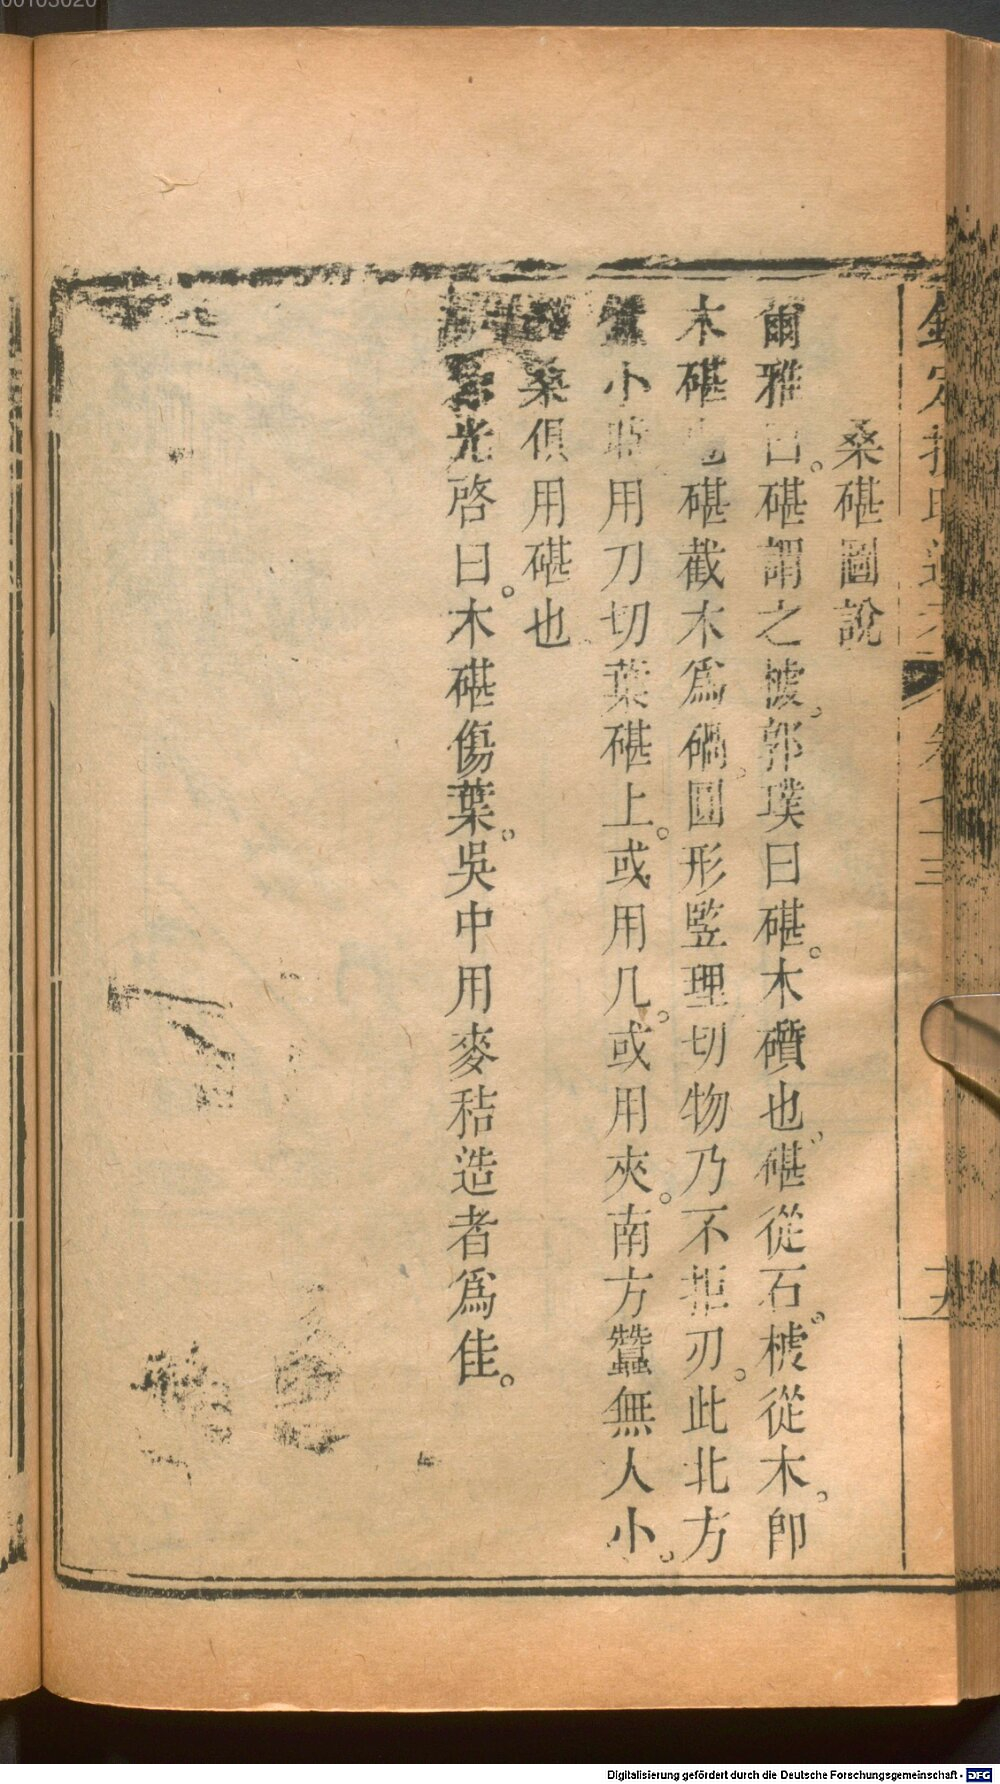 00103020
桑碪圖說
爾雅曰。碪謂之榩。郭璞曰碪。木礩也。碪從石。榩從木。卽
木碪也碪截木爲碢。圓形竪理切物乃不拒刃。此北方
蠶小時用刀切葉碪上。或用几。或用夾。南方蠶無人小。
桑俱用碪也
光啓曰。木碪傷葉。吳中用麥秸造者爲佳。
Digitalisierung gefördert durch die Deutsche Forschungsgemeinschaft - DFG